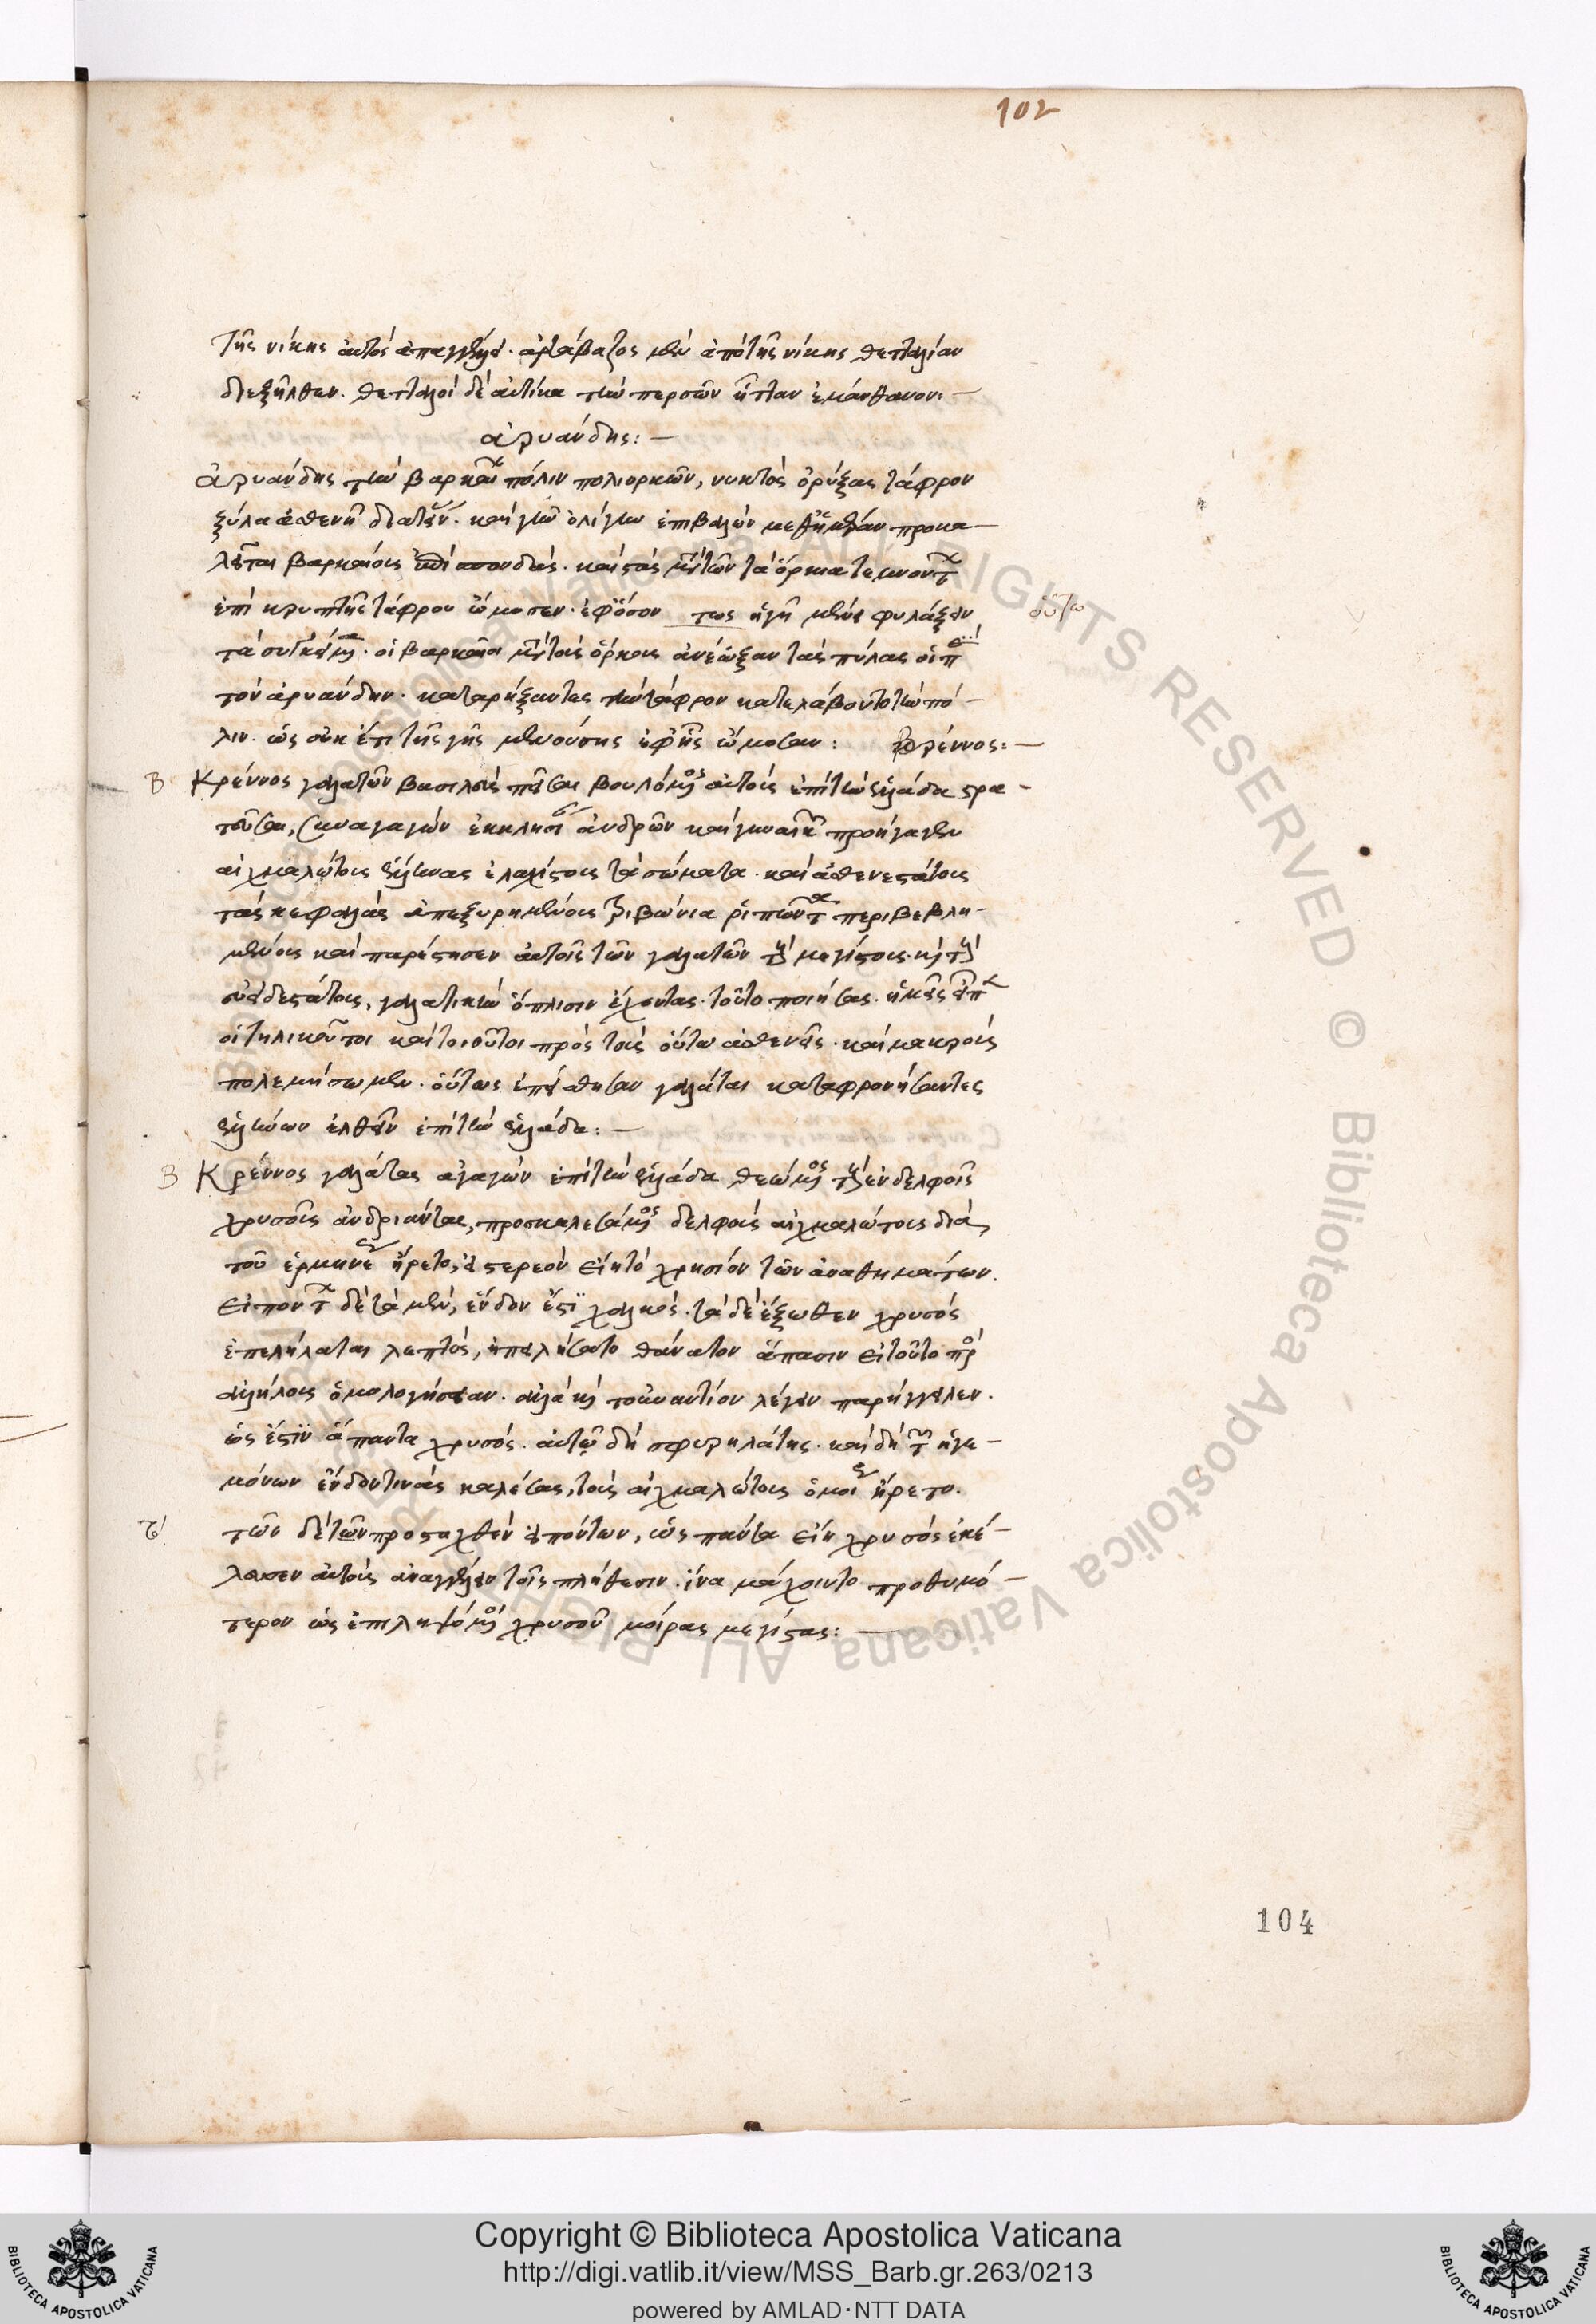 102
τῆς νίκης αὐτὸς ἀπαγγεῖλαι. ἀρτάβαζος μὲν ἀπὸ τῆς νίκης θετταλίαν
διεξῆλθεν. θετταλοὶ δὲ αὐτίκα τὴν περσῶν ἧτταν ἐμάνθανον:—
ἀρυάνδης:—
ἀρυάνδης τὴν βαρκαίων πόλιν πολιορκῶν, νυκτὸς ὀρύξας τάφρον
ξύλα ἀσθενῆ διατείνει. καὶ γῆν ὀλίγην ἐπιβαλὼν μεθ' ἡμέραν προκα—
λεῖται βαρκαίους ἐπὶ σπονδάς. καὶ τὰς μετ' αὐτῶν τὰ ὅρκια τέμνοντας
ἐπὶ κρυπτῆς τάφρου ὤμοσεν. ἐφ' ὅσον τως ἡ γῆ μένει φυλάξειν
οὕτω
τὰ συγκείμενα. οἱ βαρκαῖοι μετὰ τοὺς ὅρκους ἀνέῳξαν τὰς πύλας οἱ περὶ
τὸν ἀρυάνδην. καταρήξαντες τὴν τάφρον κατελάβοντο τὴν πό—
λιν. ὡς οὐκ ἔτι τῆς γῆς μενούσης ἐφ' ἧς ὤμοσαν: Βρέννος:—
Β Κρέννος γαλατῶν βασιλεὺς πεῖσαι βουλόμενος αὐτοὺς ἐπὶ τὴν ἑλλάδα στρα—
τεῦσαι, συναγαγὼν ἐκκλησίαν ἀνδρῶν καὶ γυναικῶν προήγαγεν
αἰχμαλώτους ἕλληνας ἐλαχίστους τὰ σώματα. καὶ ἀσθενεστάτους
τὰς κεφαλὰς ἀπεξυρημένους τριβώνια ῥυπῶντα περιβεβλη—
μένους καὶ παρέστησεν αὐτοῖς τῶν γαλατῶν τοὺς μεγίστους. καὶ τοὺς
εὐειδεστάτους, γαλατικὴν ὅπλισιν ἔχοντας. τοῦτο ποιήσας. ἡμεῖς εἶπεν
οἱ τηλικοῦτοι καὶ τοιοῦτοι πρὸς τοὺς οὕτω ἀσθενεῖς. καὶ μακροὺς
πολεμήσωμεν. οὕτως ἐπείσθησαν γαλάται καταφρονήσαντες
ἑλλήνων ἐλθεῖν ἐπὶ τὴν ἑλλάδα:—
Β Κρέννος γαλάτας ἀγαγὼν ἐπὶ τὴν ἑλλάδα θεώμενος τοὺς ἐν δελφοῖς
χρυσοῦς ἀνδριάντας, προσκαλεσάμενος δελφοὺς αἰχμαλώτους διὰ
τοῦ ἑρμηνέως ἤρετο, εἰ στερεὸν εἴη τὸ χρυσίον τῶν ἀναθημάτων.
εἰπόντων δὲ τὰ μὲν, ἔνδον ἐστὶ χαλκός. τὰ δὲ ἔξωθεν χρυσὸς
ἐπελήλαται λεπτός, ἠπειλήσατο θάνατον ἅπασιν εἰ τοῦτο πρὸς
ἀλλήλους ὁμολογήσειαν. ἀλλὰ καὶ τοὐναντίον λέγειν παρήγγειλεν.
ὡς ἐστὶν ἅπαντα χρυσός. αὐτῷ δὴ σφυρηλάτης. καὶ δὴ τῶν ἡγε—
μόνων ἔνδον τινὰς καλέσας, τοὺς αἰχμαλώτους ὁμοίως ἤρετο.
τῶν δὲ τῶν προσταχθὲν εἰπόντων, ὡς πάντα εἴη χρυσὸς ἐκέ—
λευσεν αὐτοὺς ἀναγγεῖλαι τοῖς πλήθεσιν. ἵνα μάχοιντο προθυμό—
τερον ὡς ἐπιληψόμενοι χρυσοῦ μοίρας μεγίστας:—
104
Copyright © Biblioteca Apostolica Vaticana
http://digi.vatlib.it/view/MSS_Barb.gr.263/0213
powered by AMLAD·NTT DATA
BIBLIOTECA APOSTOLICA VATICANA
BIBLIOTECA APOSTOLICA VATICANA